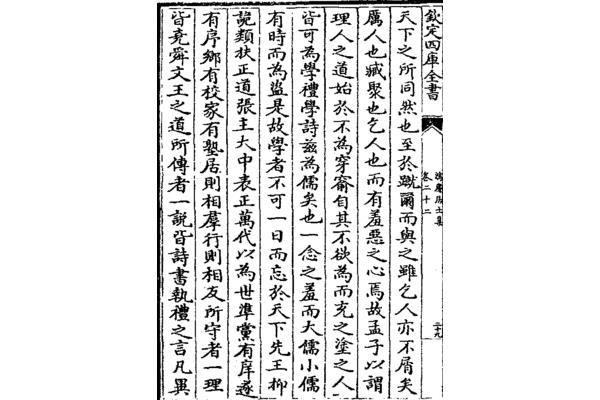 欽定四庫全書
鴻慶居士集
卷二十二
天下之所同然也至於蹴爾而與之雖乞人亦不屑矣
厲人也臧聚也乞人也而有羞惡之心焉故孟子以謂
理人之道始於不為穿窬自其不欲為而充之塗之人
皆可為學禮學詩茲為儒矣也一念之羞而大儒小儒
有時而為盜是故學者不可一日而忘於天下先王抑
詭類扶正道張主大中表正萬代以為世準黨有庠遂
有序鄉有校家有塾居則相羣行則相友所守者一理
皆堯舜文王之道所傳者一說皆詩書執禮之言凡異